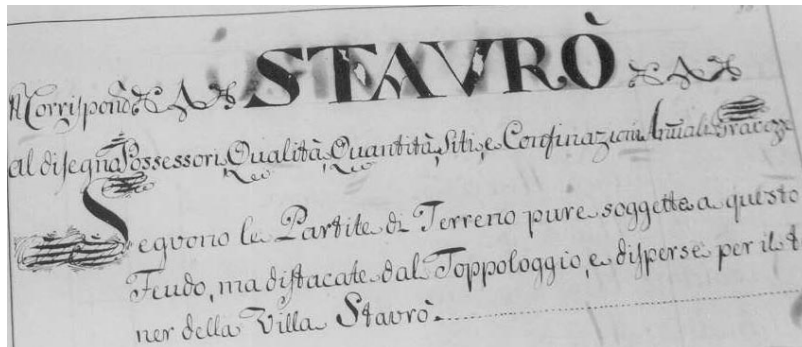 STAVRÒ
N Corrispond
al disegna Possessori, Qualità, Quantità, Siti, e Confinazioni Annuali Gravezze
Seguono le Partite di Terreno pure soggette a questo
Feudo, ma distacate dal Toppologgio, e disperse per il t
ner della Villa Stavrò